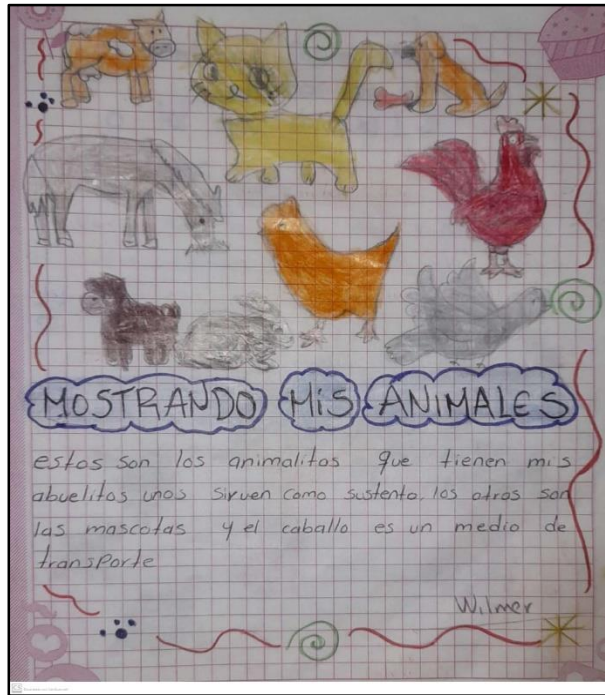 MOSTRANDO MiS ANIMALES
estos son los animalitos que tienen mis
abuelitos unos sirven como sustento. los otros son
las mascotas y el caballo es un medio de
transporte
Wilmer